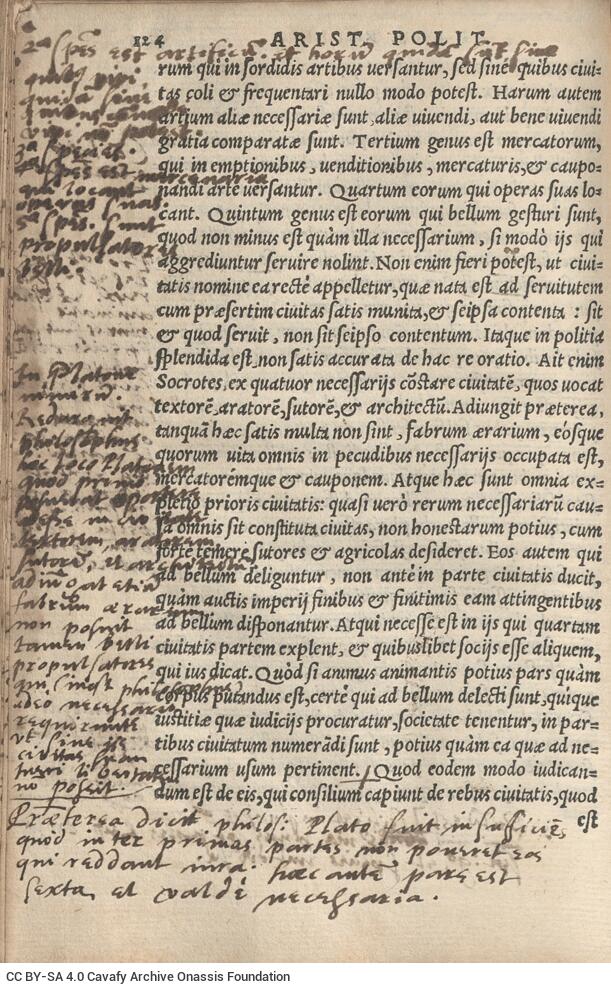 124 ARIST. POLIT.
2ª spēs est artificū. et horū quidā sunt sine
rum qui in sordidis artibus uersantur, sed sine quibus ciui-
tas coli & frequentari nullo modo potest. Harum autem
artium aliæ necessariæ sunt, aliæ uiuendi, aut bene uiuendi
gratia comparatæ sunt. Tertium genus est mercatorum,
qui in emptionibus, uenditionibus, mercaturis, & caupo-
nandi arte uersantur. Quartum eorum qui operas suas lo-
cant. Quintum genus est eorum qui bellum gesturi sunt,
quod non minus est quàm illa necessarium, si modò ijs qui
aggrediuntur seruire nolint. Non enim fieri potest, ut ciui-
tatis nomine ea rectè appelletur, quæ nata est ad seruitutem
cum præsertim ciuitas satis munita, & seipsa contenta : sit
& quod seruit, non sit seipso contentum. Itaque in politia
splendida est, non satis accurata de hac re oratio. Ait enim
Socrotes, ex quatuor necessarijs cōstare ciuitatē, quos uocat
textorē, aratorē, sutorē, & architectū. Adiungit præterea,
tanquā hæc satis multa non sint, fabrum ærarium, eosque
quorum uita omnis in pecudibus necessarijs occupata est,
mercatorémque & cauponem. Atque hæc sunt omnia ex-
pletio prioris ciuitatis: quasi uerò rerum necessariarū cau-
sa omnis sit constituta ciuitas, non honestarum potius, cum
forte temere sutores & agricolas desideret. Eos autem qui
ad bellum deliguntur, non antè in parte ciuitatis ducit,
quàm auctis imperij finibus & finitimis eam attingentibus
ad bellum disponantur. Atqui necesse est in ijs qui quartam
ciuitatis partem explent, & quibuslibet socijs esse aliquem,
qui ius dicat. Quòd si animus animantis potius pars quàm
corpus putandus est, certè qui ad bellum delecti sunt, quique
iustitiæ quæ iudicijs procuratur, societate tenentur, in par-
tibus ciuitatum numerādi sunt, potius quàm ea quæ ad ne-
cessarium usum pertinent. Quod eodem modo iudican-
dum est de eis, qui consilium capiunt de rebus ciuitatis, quod
est
qui locant
operas suas
5ª spēs. sunt
propulsatores
belli.
In Platone
philosophus
hoc loco Platonem
quod primo
fabrum ærarium
non posuit
tamen belli
propulsatores
adeo necessarii
requirunt
ut sine ijs
civitas
no possit.
Præterea dicit philos: Plato fuit insufficiēs
quod inter primas partes non poneret eos
qui reddant iura. hæc autē pars est
sexta, et valdè necessaria.
CC BY-SA 4.0 Cavafy Archive Onassis Foundation